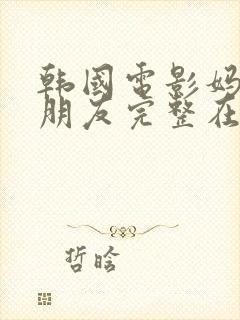 韩國電影妈
朋友完整在
哲晗